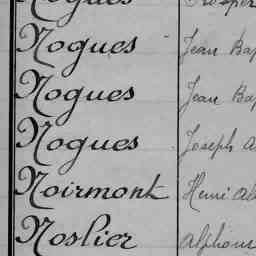 Nogues Prosper
Nogues Jean Bap
Nogues Jean Bap
Nogues Joseph A
Noirmont Henri Al
Noslier Alphons